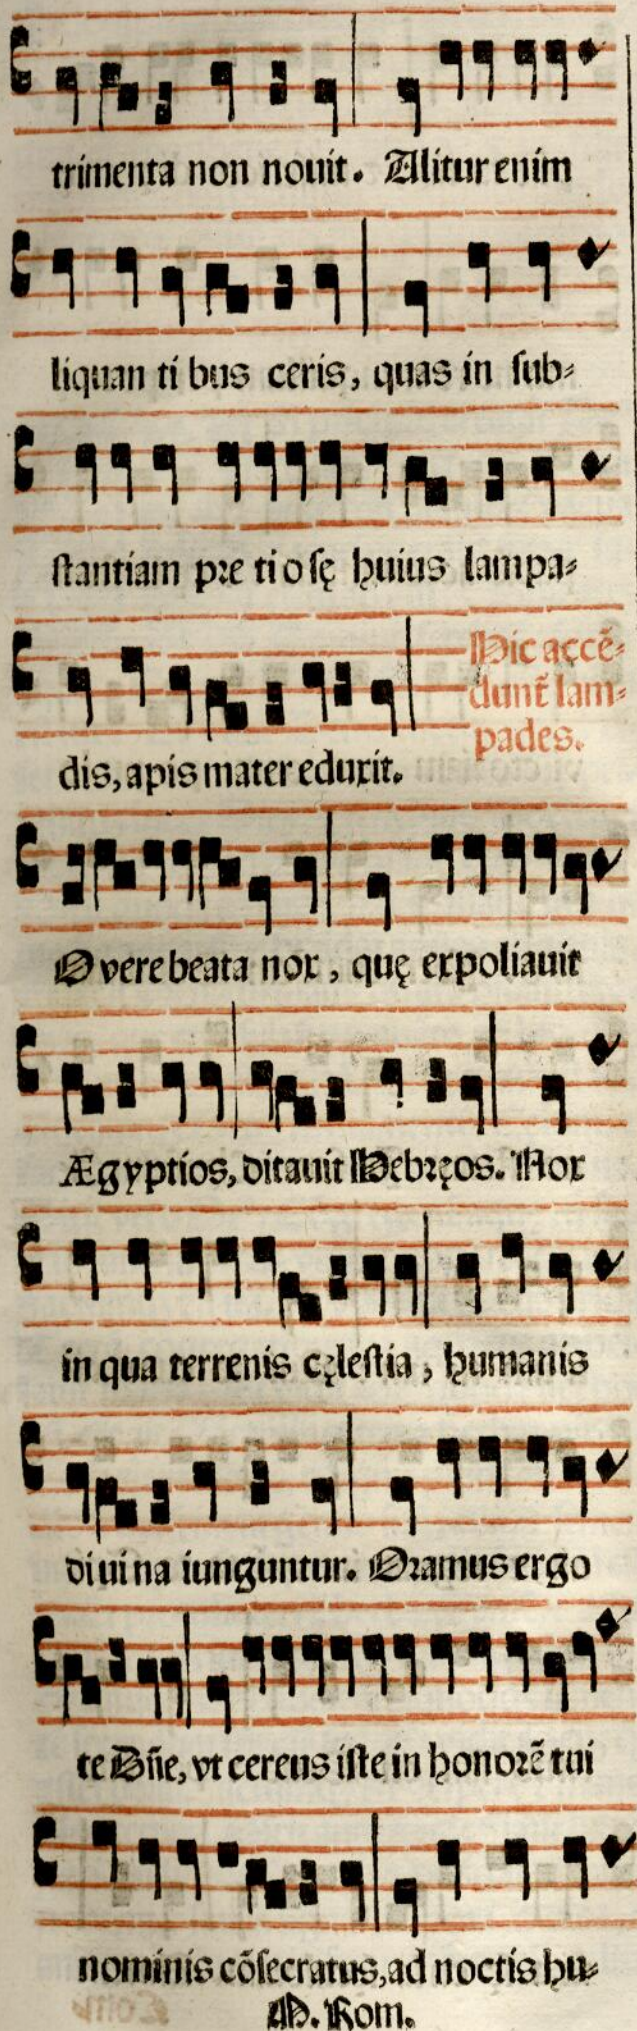 trimenta non nouit. Alitur enim
liquan ti bus ceris, quas in sub⸗
stantiam pre ti o sę huius lampa⸗
Hic accē⸗
dunt̄ lam⸗
pades.
dis, apis mater eduxit.
O vere beata nox, quę expoliauit
Ægyptios, ditauit Hebręos. Nox
in qua terrenis cęlestia, humanis
diui na iunguntur. Oramus ergo
te Dñe, vt cereus iste in honorē tui
nominis cōsecratus, ad noctis hu⸗
M. Rom.